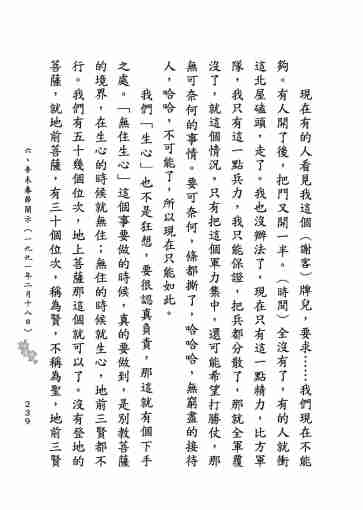 現在有的人看見我這個（謝客）牌兒，要求……我們現在不能
夠。有人開了後，把門又開一半。（時間）全沒有了，有的人就衝
這北屋磕頭，走了。我也沒辦法了，現在只有這一點精力，比方軍
隊，我只有這一點兵力，我只能保證，把兵都分散了，那就全軍覆
沒了，就這個情況。只有把這個軍力集中。還可能希望打勝仗，那
無可奈何的事情。要可奈何，條都撕了，哈哈哈，無窮盡的接待
人，哈哈，不可能了，所以現在只能如此。
我們「生心」也不是狂想，要很認真負責，那這就有個下手
之處。「無住生心」這個事要做的時候，真的要做到，是別教菩薩
的境界，在生心的時候就無住；無住的時候就生心，地前三賢都不
行。我們有五十幾個位次，地上菩薩那這個就可以了。沒有登地的
菩薩，就地前菩薩，有三十個位次，稱為賢，不稱為聖。地前三賢
六、辛未春節開示（一九九一年二月十八日）
239